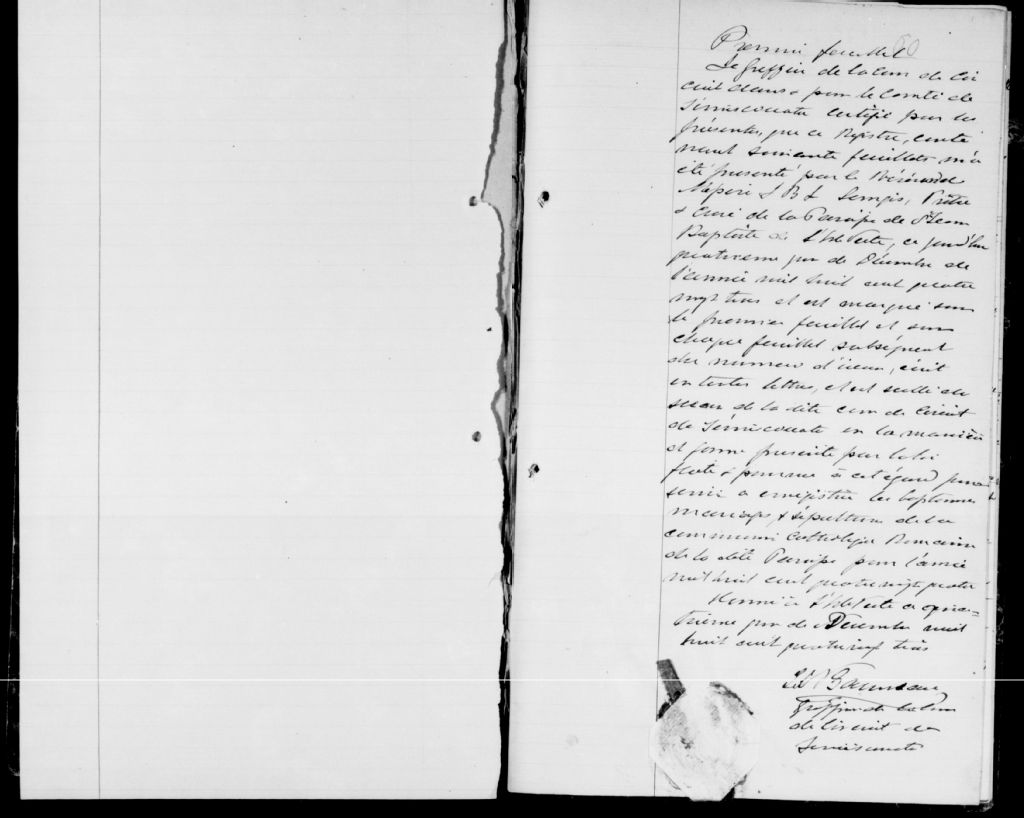 Premier feuillet 60
Le Greffier de la Cour de Cir
cuit dans & pour le Comté de
Témiscouata certifie par les
présentes, que ce Registre, conte
nant soixante feuillets m'a
été présenté par le Révérend
Napoléon J B L Lemps, Prêtre
& Curé de la Paroisse de St Jean
Baptiste de L'Isle Verte, ce jourd'hui
quatrieme jour de Décembre de
l'année mil huit cent quatre
vingt trois et est marqué sur
le premier feuillet et sur
chaque feuillet subséquent
du numero d'iceux, écrit
en toutes lettres, et est scellé du
sceau de la dite cour de Circuit
de Témiscouata en la manière
et forme prescrite par la loi
faite & pourvue à cet égard pour
servir a enregistrer les baptemes
mariages, & sépultures de la
communion Catholique Romaine
de la dite Paroisse pour l'année
mil huit cent quatre vingt quatre
Donné à L'Isle Verte ce qua-
trieme jour de Décembre mil
huit cent quatre vingt trois
Greffier de la Cour
de Circuit de
Témiscouata